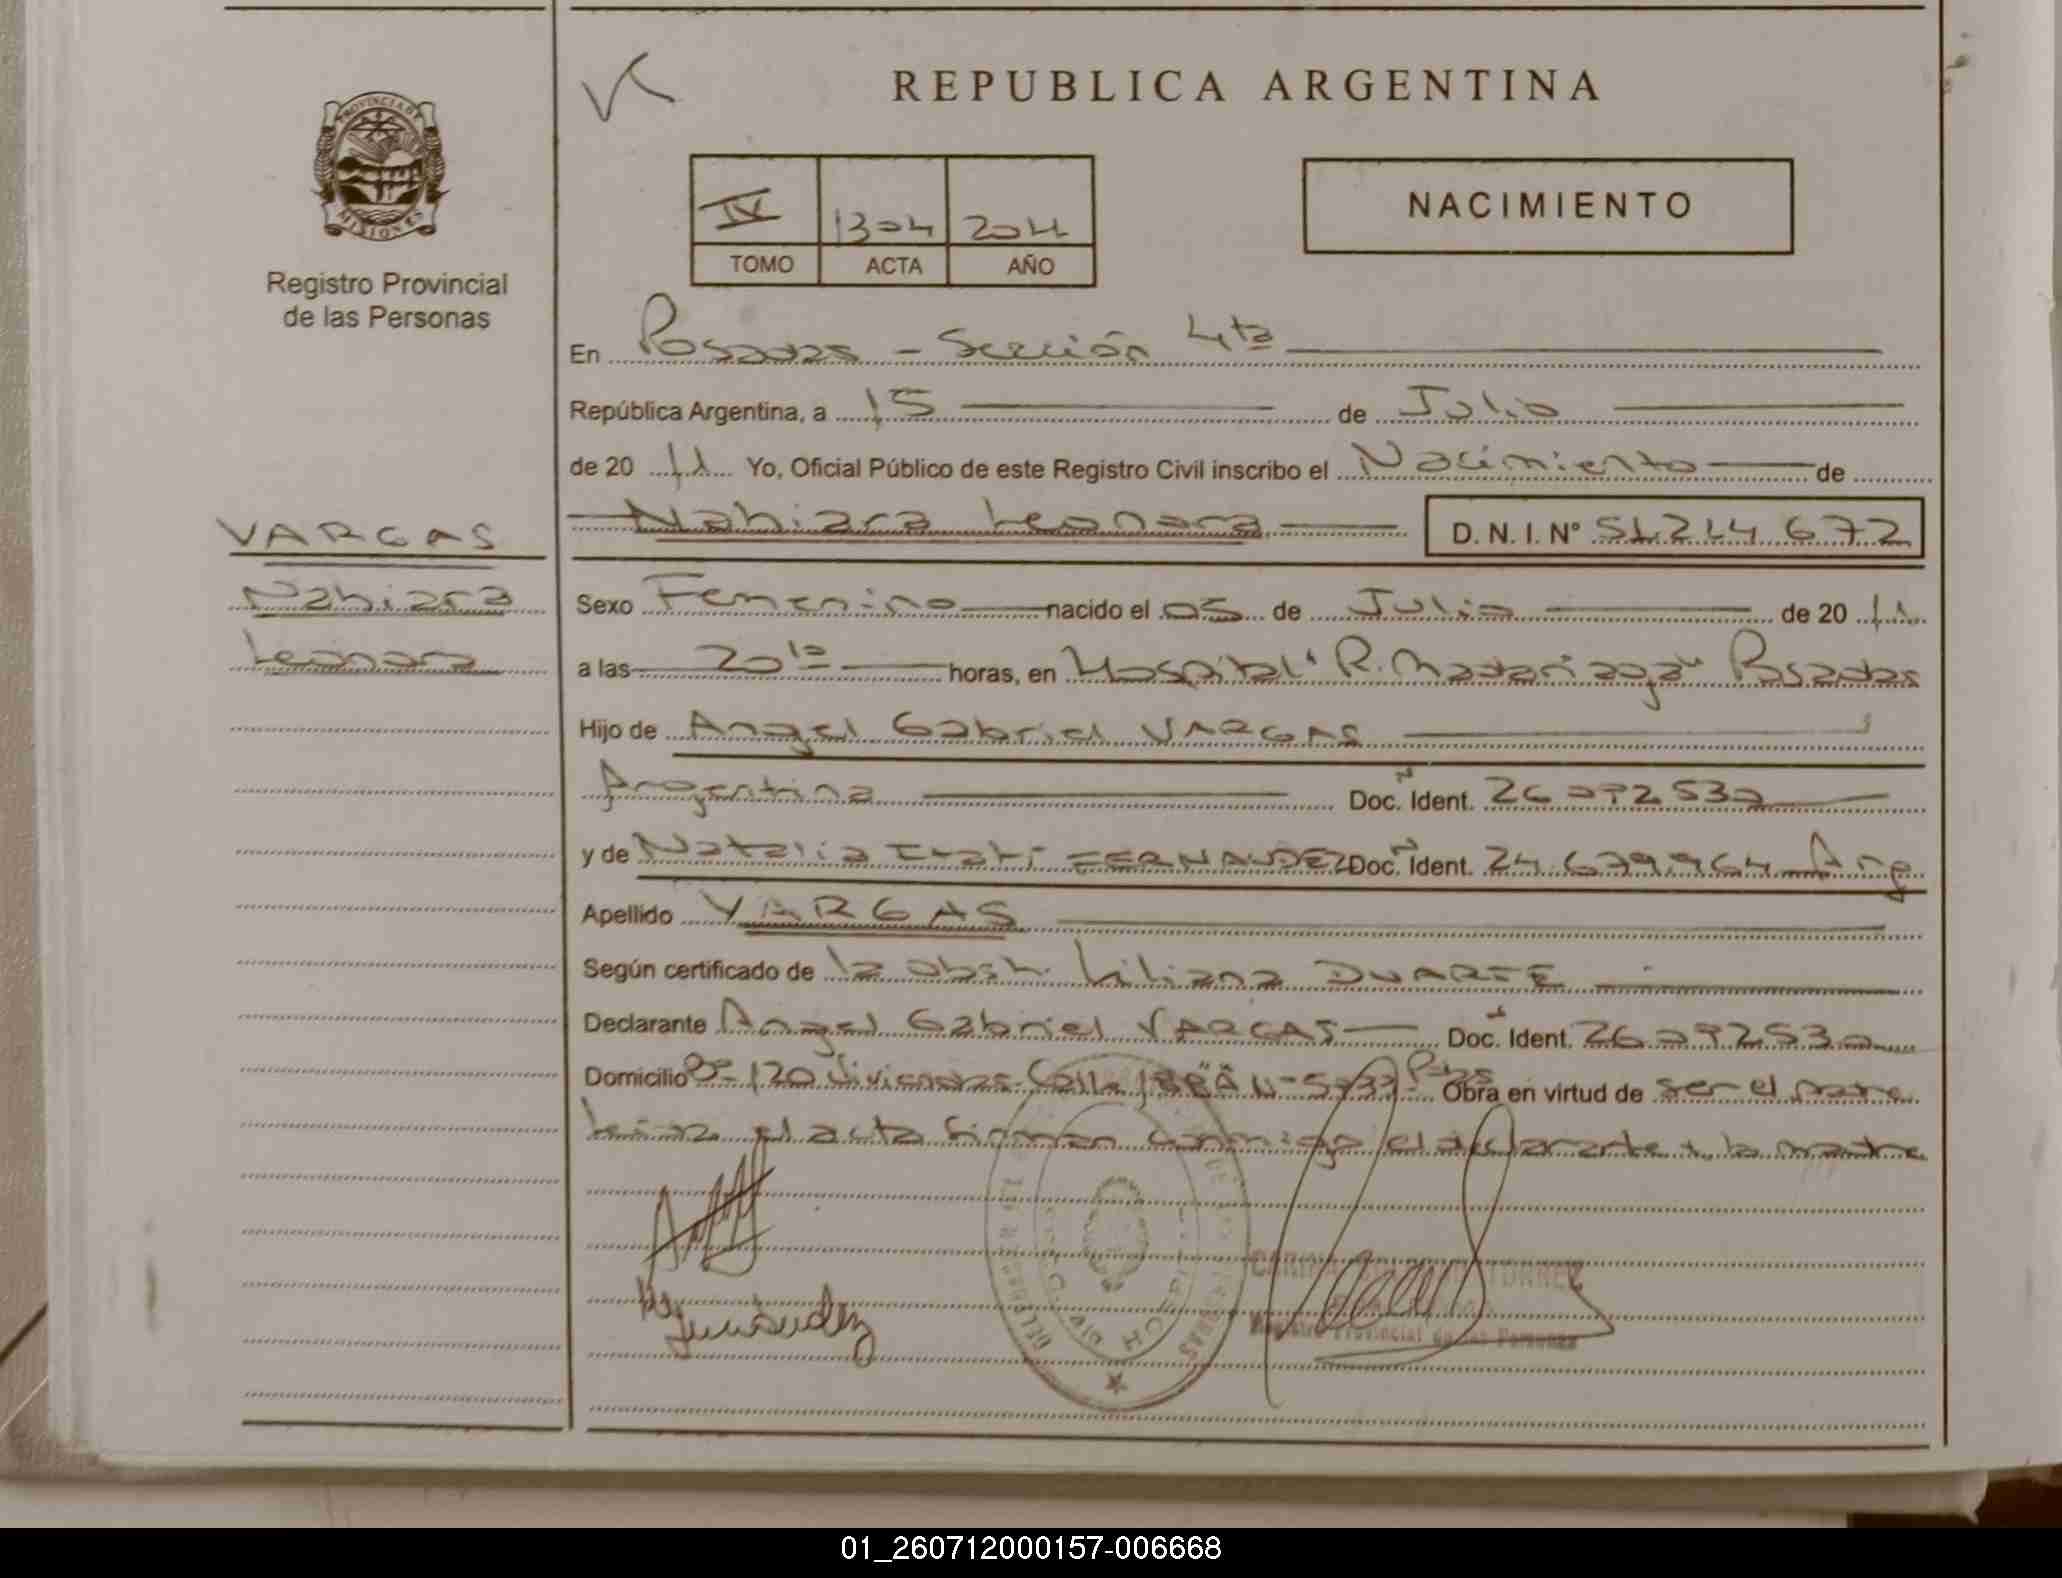 REPUBLICA ARGENTINA
PROVINCIA DE
MISIONES
Registro Provincial
de las Personas
IV 1304 2011
TOMO ACTA AÑO
NACIMIENTO
En Posadas - Sección 4ta
República Argentina, a 15 de Julio
de 20 11 Yo, Oficial Público de este Registro Civil inscribo el Nacimiento de
Nahiara Leonara D. N. I. Nº 51.214.672
VARGAS
Nahiara
Leonara
Sexo Femenino nacido el 05 de Julio de 20 11
a las 20 10 horas, en Hospital "R. Madariaga" Posadas
Hijo de Angel Gabriel VARGAS
Argentina Doc. Ident. 26072530
y de Natalia Itatí FERNANDEZ Doc. Ident. 24.679.964 Arg
Apellido VARGAS
Según certificado de la obst. Liliana DUARTE
Declarante Angel Gabriel VARGAS Doc. Ident. 26072530
Domicilio Bº 120 Viviendas Calle Obra en virtud de ser el padre
Leida el acta firman conmigo el declarante y la madre
Fernández
Registro Provincial de las Personas
01_260712000157-006668